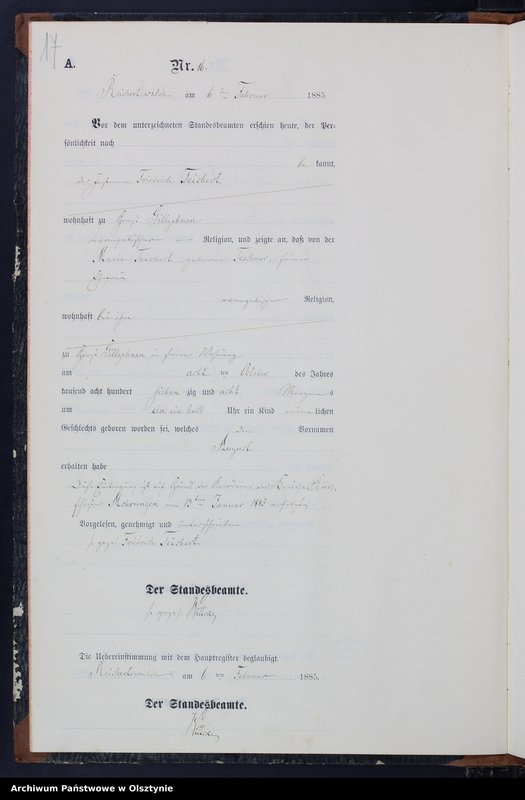 17
A.
Nr. 16.
Reichertswalde am 6 ten Februar 1885.
Vor dem unterzeichneten Standesbeamten erschien heute, der Per-
sönlichkeit nach
be kannt,
der Friedrich Teichert
wohnhaft zu Groß Gillgehnen
evangelischer Religion, und zeigte an, daß von der
Marie Teichert geborene Teschner, seiner
Ehefrau
evangelischer Religion,
wohnhaft bei ihm
zu Groß Gillgehnen in seiner Wohnung
am acht ten October des Jahres
tausend acht hundert sieben zig und acht Morgens
um ein halb Uhr ein Kind männ lichen
Geschlechts geboren worden sei, welches den Vornamen
August
erhalten habe
Diese Eintragung ist auf Grund der Anordnung des
Mohrungen vom 13 ten Januar 1885 erfolgt.
Vorgelesen, genehmigt und unterschrieben
gez. Friedrich Teichert.
Der Standesbeamte.
gez.
Die Uebereinstimmung mit dem Hauptregister beglaubigt.
Reichertswalde am 6 ten Februar 1885.
Der Standesbeamte.
Archiwum Państwowe w Olsztynie